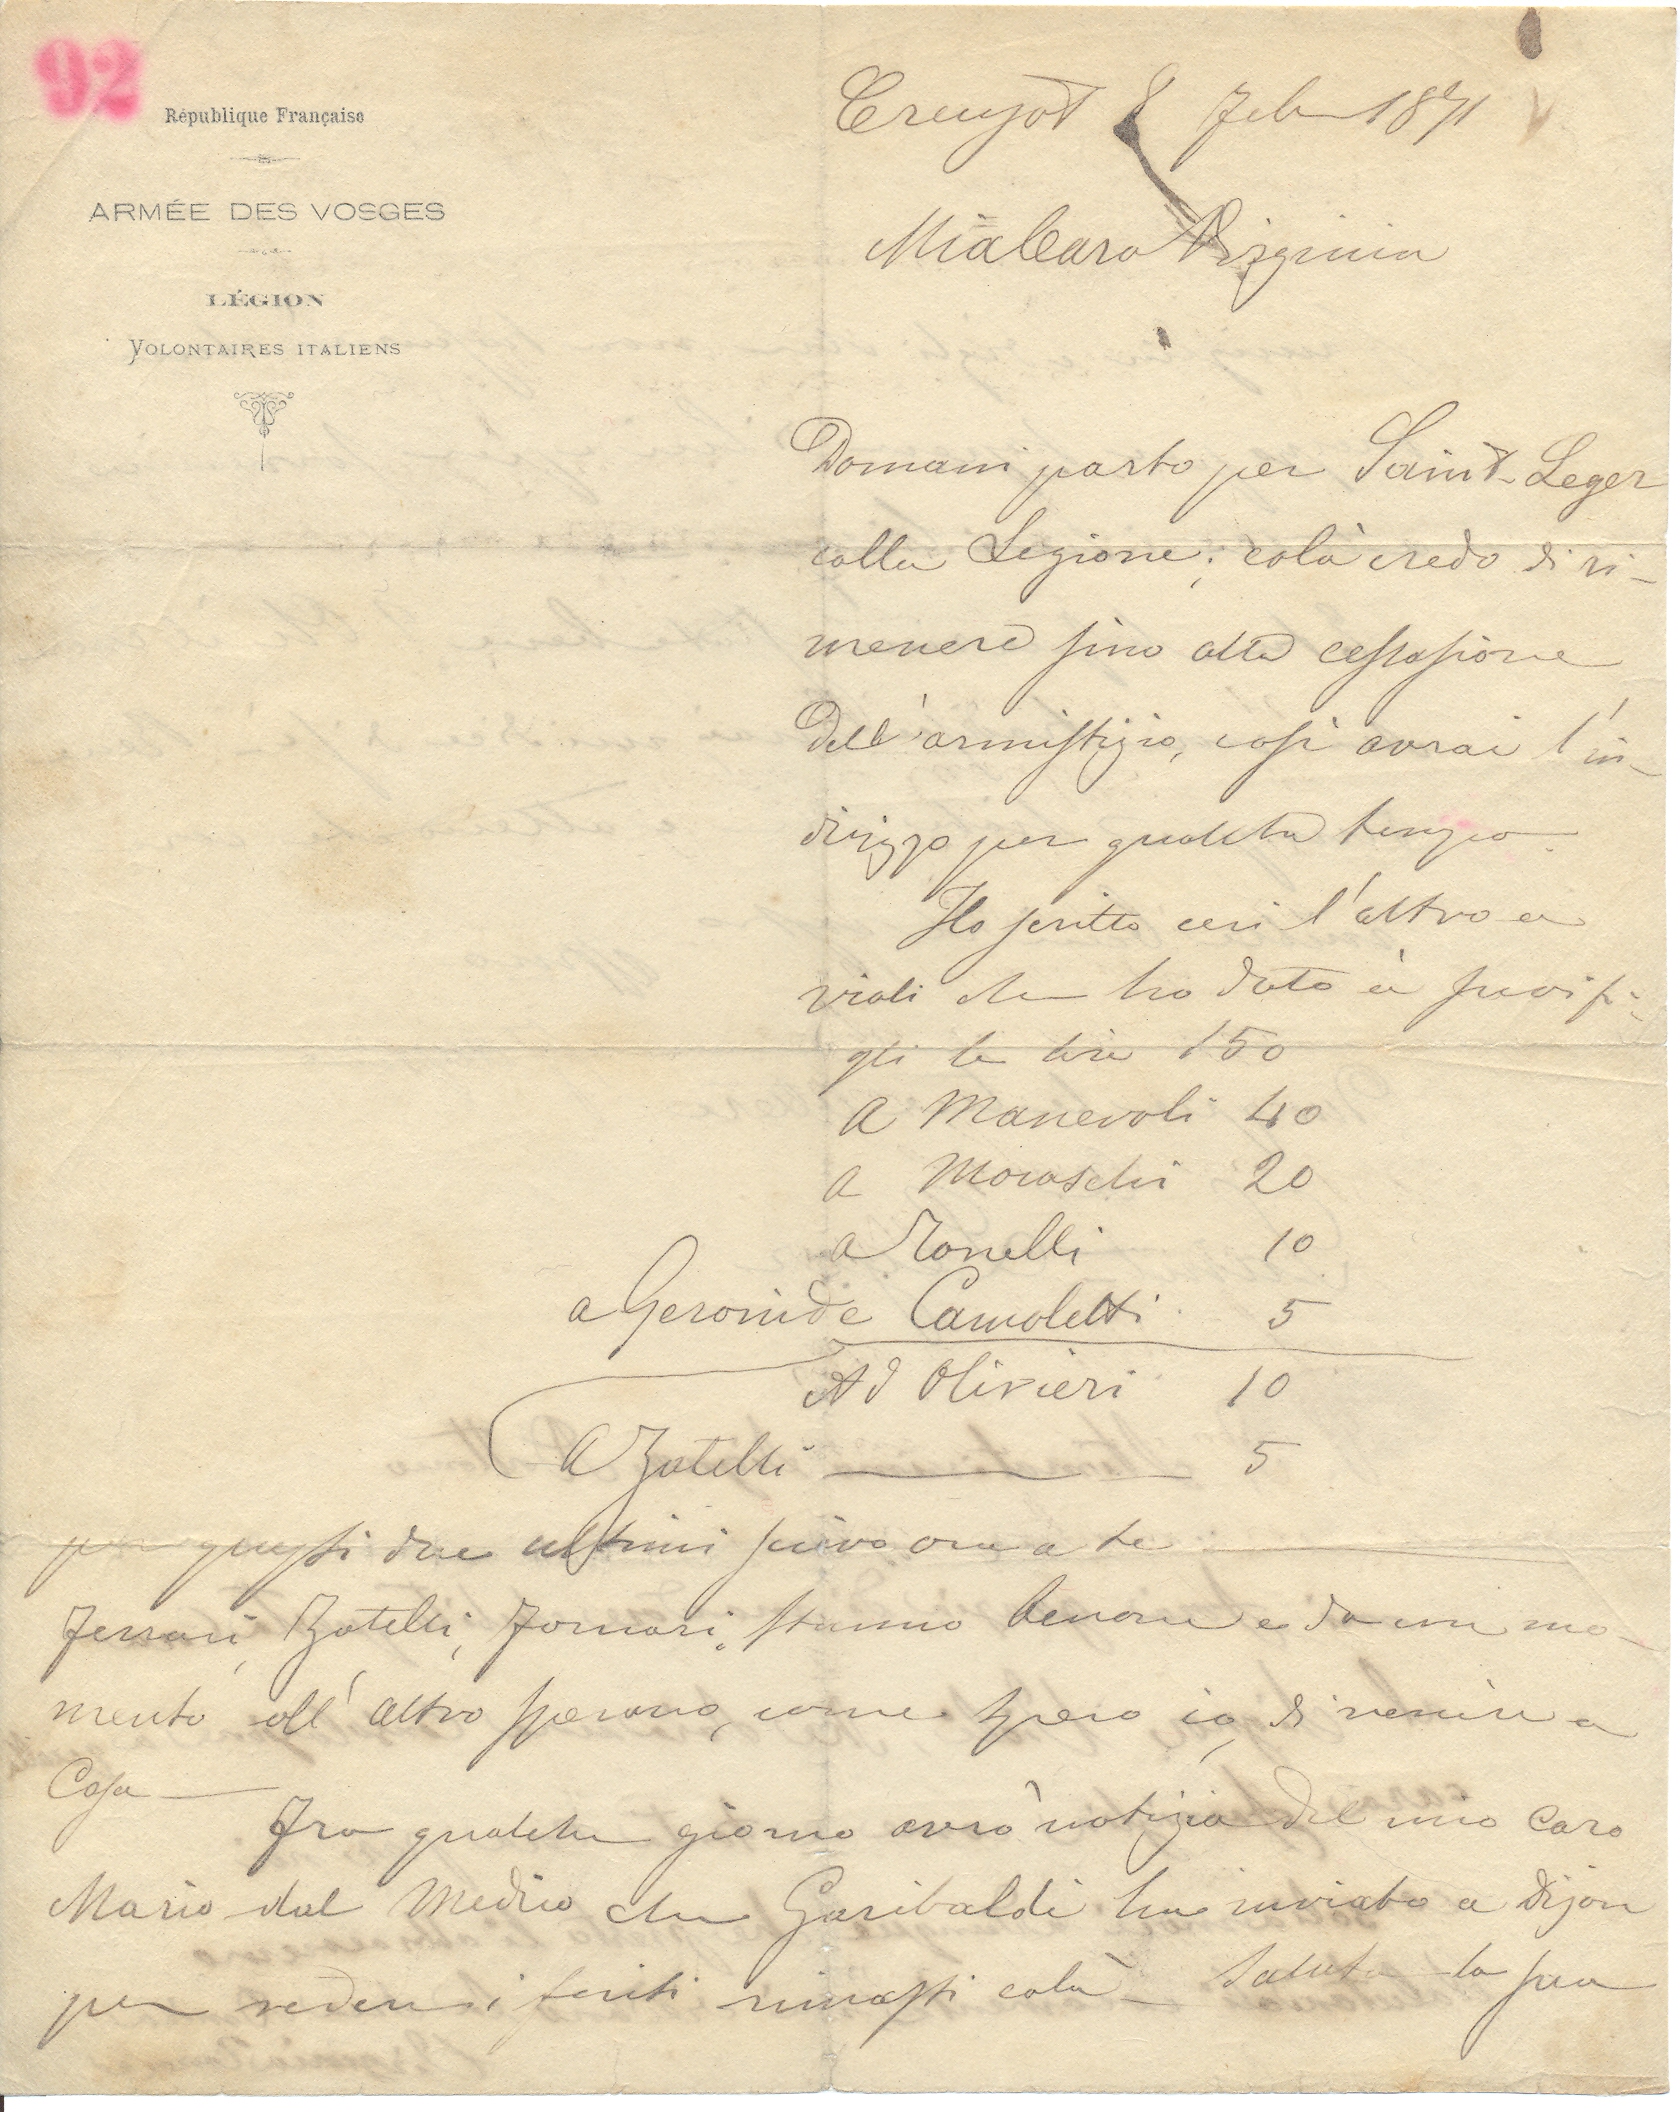 92
République Française
ARMÉE DES VOSGES
LÉGION
VOLONTAIRES ITALIENS
Creuzot 8 Feb 1871
Mia Cara Virginia
Domani parto per Saint-Leger
colla Legione; colà credo di ri-
manere sino alla cessasione
dell'armistizio, così avrai l'in-
dirizzo per qualche tempo.
Ho scritto ieri l'altro a
che ho dato a suoi fi-
gli le lire 150
A Manevoli 40
a Moraschi 20
a Tonelli 10
a Geronide Camoletti 5
Ad Olivieri 10
A Zatelli 5
per questi due ultimi scrivo ora a te
Ferrari, Zatelli, Fornari, stanno benone e da un mo-
mento all'altro sperano, come spero io, di venire a
Casa
Fra qualche giorno avrò notizia del mio caro
Mario dal Medico che Garibaldi ha inviato a Dijon
per vedere i feriti rimasti colà. Saluta la sua